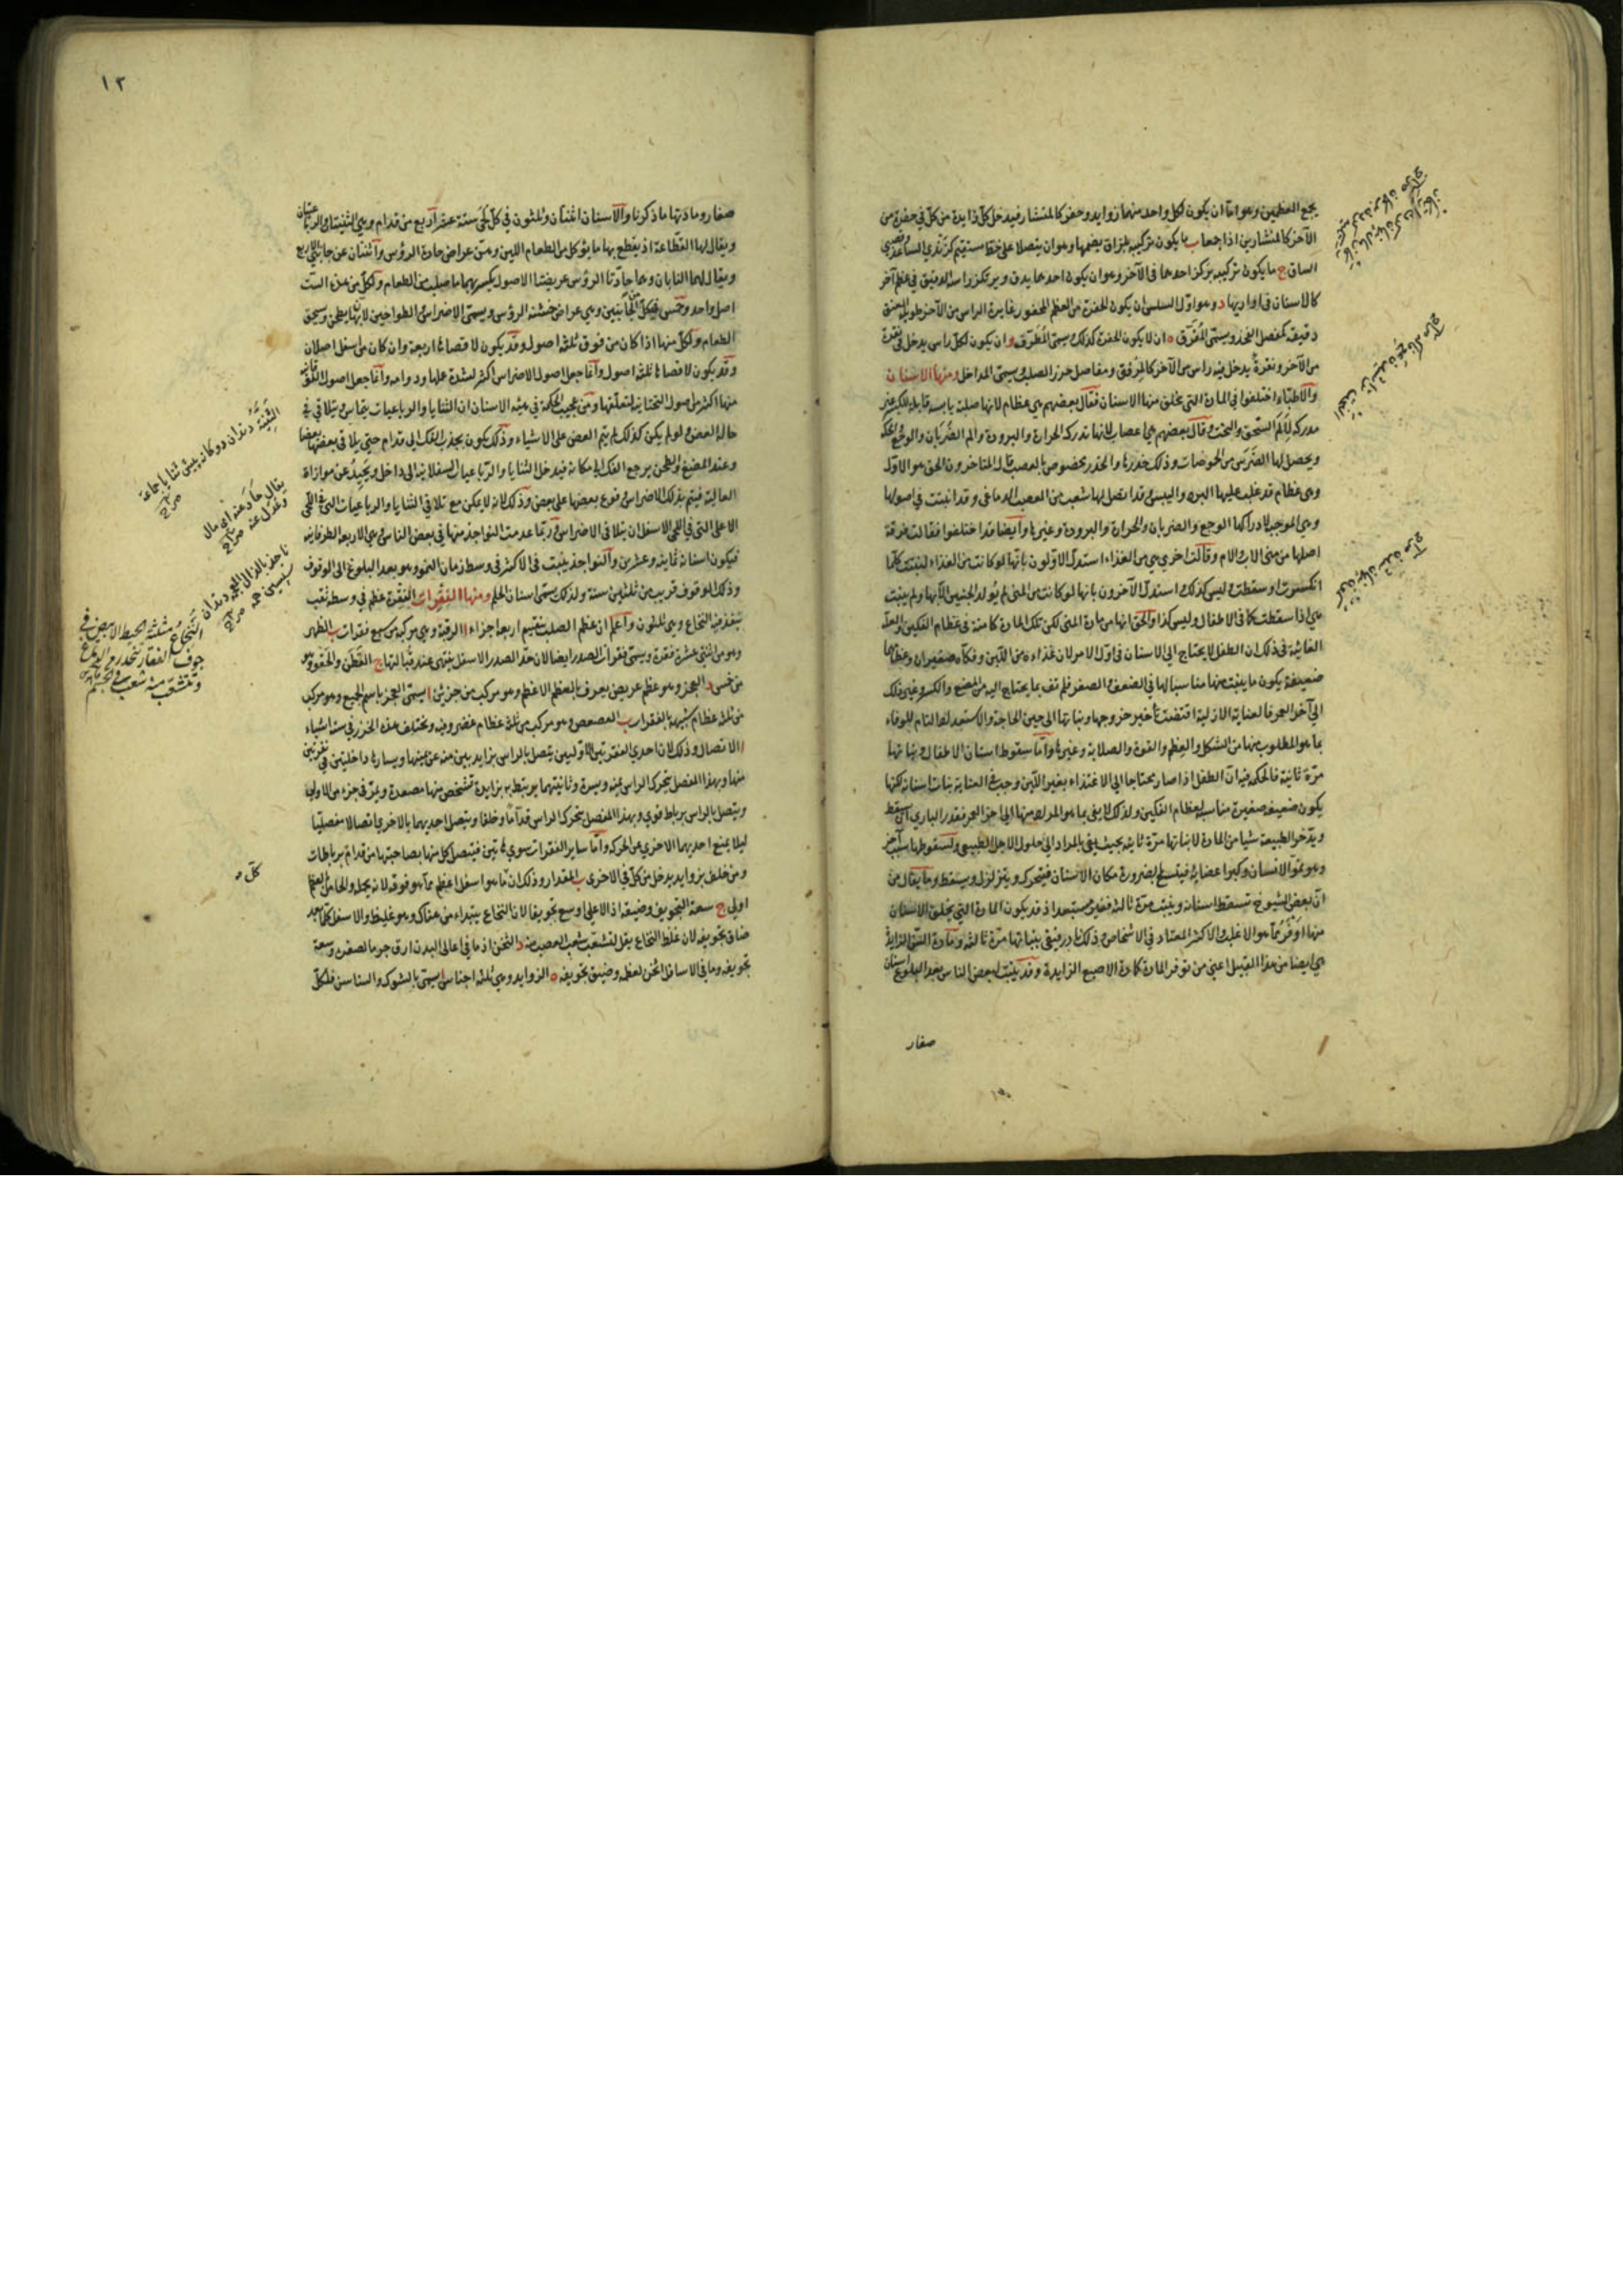 يجمع العظمين وهو اما ان يكون لكل واحد منهما زوايد وحفر كالمنشار فيدخل كل زايدة من كل في حفرة من
الآخر كالمنشارين اذا جمعا ب ما يكون تركيبه بلزاق بضمها وهو ان يتصلا على خط مستقيم كزندي الساعد
الساق ج ما يكون تركيبه بركز احدهما في الآخر وهو ان يكون احدهما يدق ويرتكز راسه الدقيق في عظم آخر
كالاسنان في اواريها د وهو اول السلس ان يكون الحفرة من العظم المحفور غايرة الراس من الآخر طويل العنق
دقيقه كمفصل الفخذ ويسمى المغرق ه ان لا يكون الحفرة كذلك يسمى المطرف و ان يكون لكل راس يدخل في نقرة
من الآخر ونقرة يدخل فيه راس من الآخر كالمرفق ومفاصل خرز الصلب ويسمى المداخل ومنها الاسنان
والاطباء اختلفوا في المادة التي تخلق منها الاسنان فقال بعضهم هي عظام لانها صلبة يابسة قابلة للكسر غير
مدركة لألم السحق والنحت وقال بعضهم هي اعصاب لانها تدرك الحرارة والبرودة والم الضربان والوجع
ويحصل لها الضرس من الحموضات وذلك خدرها والخدر مخصوص بالعصب قال المتاخرون الحق هو الاول
وهي عظام قد غلب عليها البرد واليبس وقد اتصل لها شعب من العصب الدماغي وقد انبثت في اصولها
وهي الموجبة لادراكها الوجع والضربان والحرارة والبرودة وغيرها وايضا قد اختلفوا فقالت فرقة
اصلها من مني الاب والام وقالت اخرى هي من الغذاء استدل الاولون بانها لو كانت من الغذاء لنبتت كلما
انكسرت او سقطت وليس كذلك واستدل الآخرون بانها لو كانت من المني لم يولد الجنين الا بها ولم ينبت
هي اذا سقطت كما في الاطفال وليس كذا والحق انها من مادة المني لكن تلك المادة كامنة في عظام الفكين والعلة
الغائية في ذلك ان الطفل لا يحتاج الى الاسنان في اول الامر لان غذاءه من اللبن وفكاه صغيران وعظامهما
ضعيفة يكون ما ينبت منها مناسبا لها في الضعف والصغر فلم تف بما يحتاج اليه من المضغ والكسر وغير ذلك
الى آخر العمر فالعناية الازلية اقتضت تأخير خروجها ونباتها الى حين الحاجة والاستعداد التام للوفاء
بما هو المطلوب منها من الشكل والعظم والقوة والصلابة وغيرها واما سقوط اسنان الاطفال ونباتها
مرة ثانية فالحكمة فيه ان الطفل اذا صار محتاجا الى الاغتذاء بغير اللبن وجب في العناية نبات اسنانه لكنها
يكون ضعيفة صغيرة مناسبة لعظام الفكين ولذلك لا يفي بما هو المراد منها الى آخر العمر فقدر الباري ان يسقط
ويدخر الطبيعة شيا من المادة لانباتها مرة ثانية بحيث يفي بالمراد الى حلول الاجل الطبيعي ولسقوطها سبب آخر
وهو نمو الانسان وكبر اعضائه فيتسع بالضرورة مكان الاسنان فيتحرك ويتزلزل ويسقط وما يقال من
ان بعض الشيوخ تسقط اسنانه وينبت مرة ثالثة فغير مستبعد اذ قد يكون المادة التي يخلق الاسنان
منها اوفر مما هو الاغلب والاكثر المعتاد في الاشخاص وذلك نادر فيبقى نباتها مرة ثالثة ومادة السن الزايدة
هي ايضا من هذا القبيل اعني من توفر المادة كمادة الاصبع الزايدة وقد ينبت لبعض الناس بعد البلوغ اسنان
صغار
١٢
صغار ومادتها ما ذكرنا والاسنان اثنان وثلثون في كل لحى ستة عشر اربع من قدام وهي الثنيتان والرباعيتان
ويقال لها القطاعة اذ يقطع بها ما يؤكل من الطعام اللين وهي عراض حادة الرؤس واثنتان عن جانبي الاربع
ويقال لهما النابان وهما حادتا الرؤس عريضتا الاصول يكسر بهما ما صلب من الطعام ولكل من هذه الست
اصل واحد وخمس في كل الجانبين وهي عراض خشنة الرؤس ويسمى الاضراس والطواحين لانها يطحن ويسحق
الطعام ولكل منها اذا كان من فوق ثلثة اصول وقد يكون لاقصاها اربعة وان كان من اسفل اصلان
وقد يكون لاقصاها ثلثة اصول وانما جعل اصول الاضراس اكثر لشدة عملها ودوامه وانما جعل اصول الفوقانية
منها اكثر من اصول التحتانية لتعلقها ومن عجيب الحكمة في هيئة الاسنان ان الثنايا والرباعيات يتماس ويتلاقى في
حالة العض ولو لم يكن كذلك لم يتم العض على الاشياء وذلك يكون بجذب الفك الى قدام حتى يلاقي بعضها بعضا
وعند المضغ والطحن يرجع الفك الى مكانه فيدخل الثنايا والرباعيات السفلانية الى داخل ويحيد عن موازاة
العالية فيتم بذلك للاضراس وقوع بعضها على بعض وذلك لانه لا يمكن مع تلاقي الثنايا والرباعيات التي في اللحى
الاعلى التي في اللحى الاسفل ان يتلاقى الاضراس وربما عدمت النواجذ منها في بعض الناس وهي الاربعة الطرفانية
فيكون اسنانه ثمانية وعشرين والنواجذ ينبت في الاكثر في وسط زمان النمو وهو بعد البلوغ الى الوقوف
وذلك الوقوف قريب من ثلثين سنة ولذلك يسمى اسنان الحلم ومنها الفقرات الفقرة عظم في وسطه ثقب
ينفذ فيه النخاع وهي ثلثون واعلم ان عظم الصلب ينقسم اربعة اجزاء ا الرقبة وهي مركبة من سبع فقرات ب الظهر
وهو من اثنتي عشرة فقرة ويسمى فقرات الصدر ايضا لان حد الصدر الاسفل ينتهي عند قبالتها ج القطن والحقو وهو
من خمس د العجز وهو عظم عريض يعرف بالعظم الاعظم وهو مركب من جزئين ا يسمى العجز باسم الجميع وهو مركب
من ثلثة عظام شبيهة بالفقرات ب العصعص وهو مركب من ثلثة عظام غضروفية ويختلف هذه الخرز في ستة اشياء
ا الاتصال وذلك لان احدى الفقرتين الاوليين يتصل بالراس بزايدتين منه عن يمينها ويسارها داخلتين في نقرتين
منها وبهذا المفصل يتحرك الراس يمنة ويسرة وثانيتهما يرتبط به بزايدة تشخص منها مصعدة ويمر في جزء من الاولى
ويتصل بالراس برباط قوي وبهذا المفصل يتحرك الراس قداما وخلفا ويتصل احديهما بالاخرى اتصالا مفصليا
ليلا يمنع احديهما الاخرى عن الحركة واما ساير الفقرات سوى هاتين فيتصل كل منها بصاحبتها من قدام برباطات
ومن خلف بزوايد يدخل من كل في الاخرى ب المقدار وذلك ان ما هو اسفل اعظم مما هو فوقه لانه يحمله والحامل بالعظم
اولى ج سعة التجويف وضيقه اذ الاعلى اوسع تجويفا لان النخاع يبتداء من هناك وهو غليظ والاسفل كلما بعد
ضاق تجويفه لان غلظ النخاع يقل لتشعب شعب العصب منه د الثخن اذ ما في اعالي البدن ارق جرما لصغره وسعة
تجويفه وما في الاسافل اثخن لعظمه وضيق تجويفه ه الزوايد وهي ثلثة اجناس ا يسمى بالشوك والسناسن فلكل
الثنية دندان دوگانه پيش ثنايا جماعة
صراح
يقال حاد عنه اي مال
وعدل عنه صراح
ناجذ بالذال المعجمة دندان
پسين صراح
النخاع مثلثة الخيط الابيض في
جوف الفقار ينحدر من الدماغ
وتتشعب منه شعب في الجسم